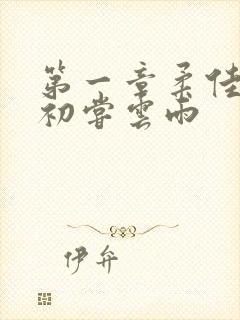 第一章柔佳
初嘗雲雨
伊弁